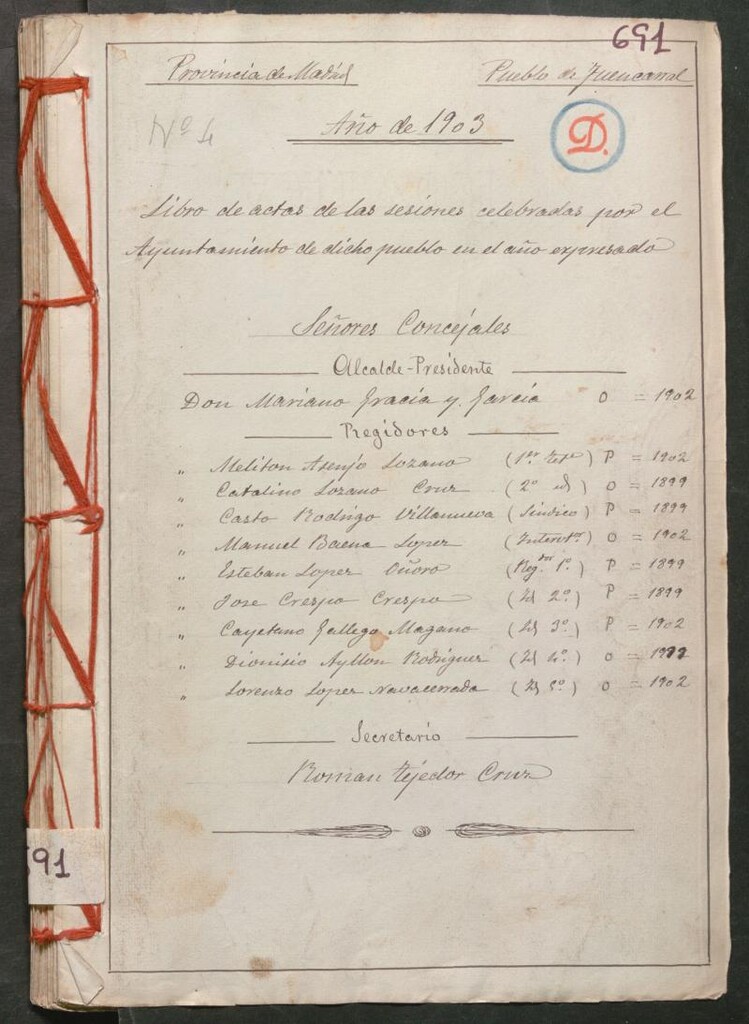 691
Provincia de Madrid
Pueblo de Fuencarral
Nº 4
Año de 1903
D.
Libro de actas de las sesiones celebradas por el
Ayuntamiento de dicho pueblo en el año expresado
Señores Concejales
Alcalde-Presidente
Don Mariano Gracia y Garcia O = 1902
Regidores
" Meliton Asenjo Lozano (1er Tete) P = 1902
" Catalino Lozano Cruz (2º id) O = 1899
" Casto Rodrigo Villanueva (Sindico) P = 1899
" Manuel Baena Lopez (Intervor) O = 1902
" Esteban Lopez Oñoro (Regdor 1º.) P = 1899
" Jose Crespo Crespo (Id 2º.) P = 1899
" Cayetano Gallego Magano (Id 3º.) P = 1902
" Dionisio Ayllon Rodriguez (Id 4º.) O =
" Lorenzo Lopez Navacerrada (Id 5º) O = 1902
Secretario
Roman Tejedor Cruz
91